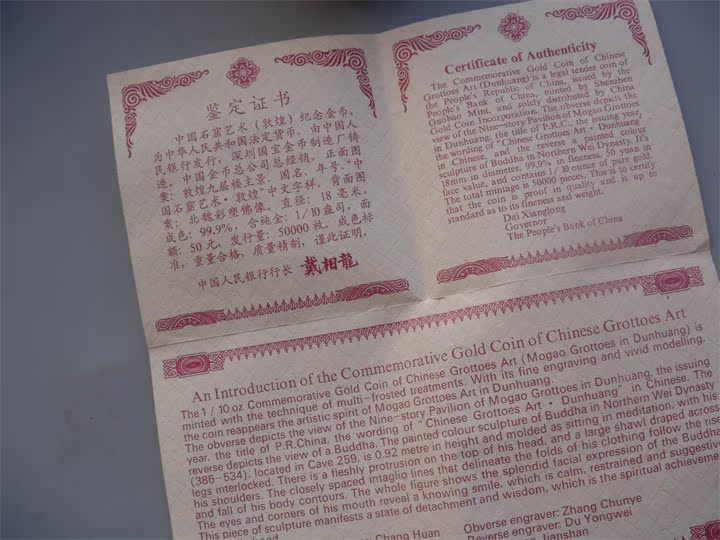 鉴定证书
中国石窟艺术（敦煌）纪念金币，
为中华人民共和国法定货币。由中国人
民银行发行，深圳国宝金币制造厂铸
造，中国金币总公司总经销。正面图
案：敦煌九层楼主景、国名、年号、“中
国石窟艺术·敦煌”中文字样。背面图
案：北魏彩塑佛像。直径：18毫米，
成色：99.9%，含纯金：1/10盎司，面
额：50元，发行量：50000枚。成色标
准，重量合格，质量精制，谨此证明。
中国人民银行行长 戴相龍
Certificate of Authenticity
The Commemorative Gold Coin of Chinese
Grottoes Art (Dunhuang) is a legal tender coin of
the People's Republic of China, issued by the
People's Bank of China, minted by Shenzhen
Guobao Mint, and solely distributed by China
Gold Coin Incorporation. The obverse depicts the
view of the Nine-story Pavilion of Mogao Grottoes
in Dunhuang, the title of P.R.C., the issuing year,
the wording of "Chinese Grottoes Art · Dunhuang"
in Chinese, and the reverse a painted colour
sculpture of Buddha in Northern Wei Dynasty. It's
18mm in diameter, 99.9% in fineness, 50 yuan in
face value, and contains 1/10 ounce of pure gold.
The total mintage is 50000 pieces. This is to certify
that the coin is proof in quality and is up to
standard as to its fineness and weight.
Dai Xianglong
Governor
The People's Bank of China
An Introduction of the Commemorative Gold Coin of Chinese Grottoes Art
The 1/10 oz Commemorative Gold Coin of Chinese Grottoes Art (Mogao Grottoes in Dunhuang) is
minted with the technique of multi-frosted treatments. With its fine engraving and vivid modelling,
the coin reappears the artistic spirit of Mogao Grottoes Art in Dunhuang.
The obverse depicts the view of the Nine-story Pavilion of Mogao Grottoes in Dunhuang, the issuing
year, the title of P.R.China, the wording of "Chinese Grottoes Art · Dunhuang" in Chinese. The
reverse depicts the view of a Buddha. The painted colour sculpture of Buddha in Northern Wei Dynasty
(386-534), located in Cave 259, is 0.92 metre in height and molded as sitting in meditation, with his
legs interlocked. There is a fleshly protrusion on the top of his head, and a large shawl draped across
his shoulders. The closely spaced intaglio lines that delineate the folds of his clothing follow the rise
and fall of his body contours. The whole figure shows the splendid facial expression of the Buddha
The eyes and corners of his mouth reveal a knowing smile, which is calm, restrained and suggestin
This piece of sculpture manifests a state of detachment and wisdom, which is the spiritual achieveme
Chang Huan
Obverse engraver: Zhang Chunye
Reverse engraver: Du Yongwei
Jianshan